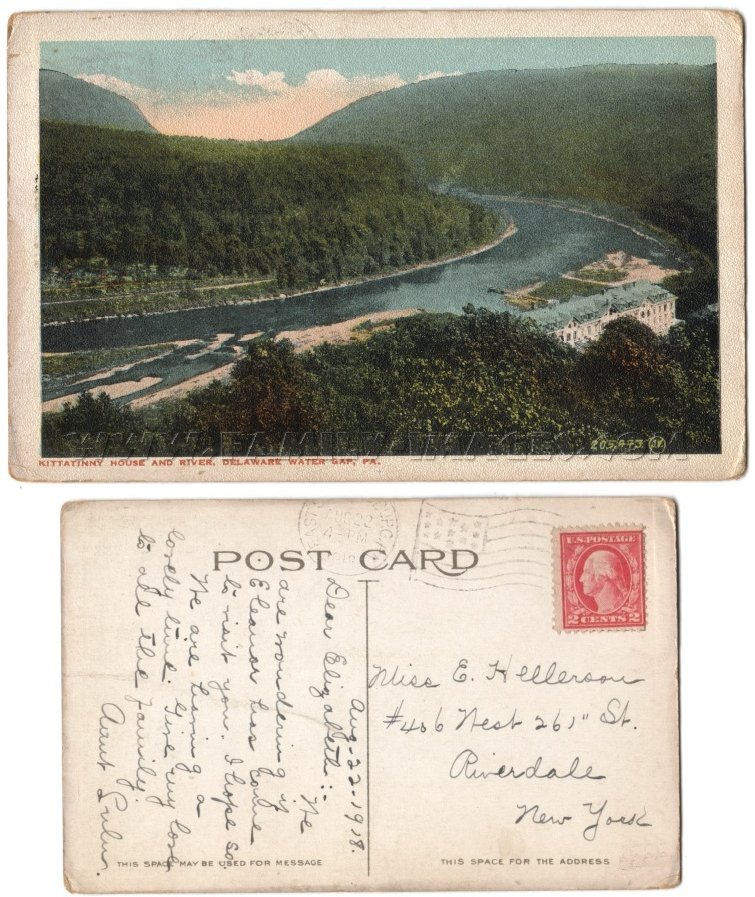 WWW.FAMILY-IMAGES.CA
205,473 (N)
KITTATINNY HOUSE AND RIVER, DELAWARE WATER GAP, PA.
POST CARD
U.S. POSTAGE
2 CENTS 2
Aug-22-1918.
Dear Elizabeth:-
We
are wondering if
Eleanor has come
to visit you. I hope so.
We are having a
lovely time. Give my love
to all the family.
Aunt Lulu.
Miss E. Hellerson
#406 West 261" St.
Riverdale
New York
THIS SPACE MAY BE USED FOR MESSAGE
THIS SPACE FOR THE ADDRESS